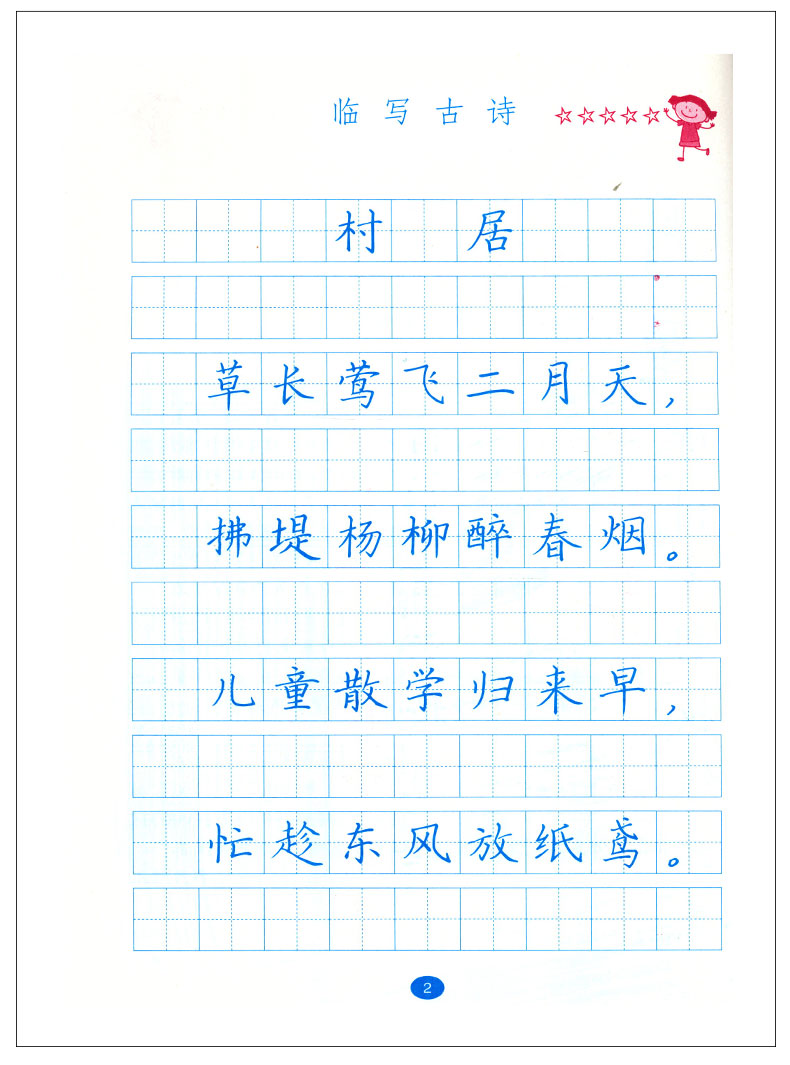 临写古诗
村居
草长莺飞二月天，
拂堤杨柳醉春烟。
儿童散学归来早，
忙趁东风放纸鸢。
2